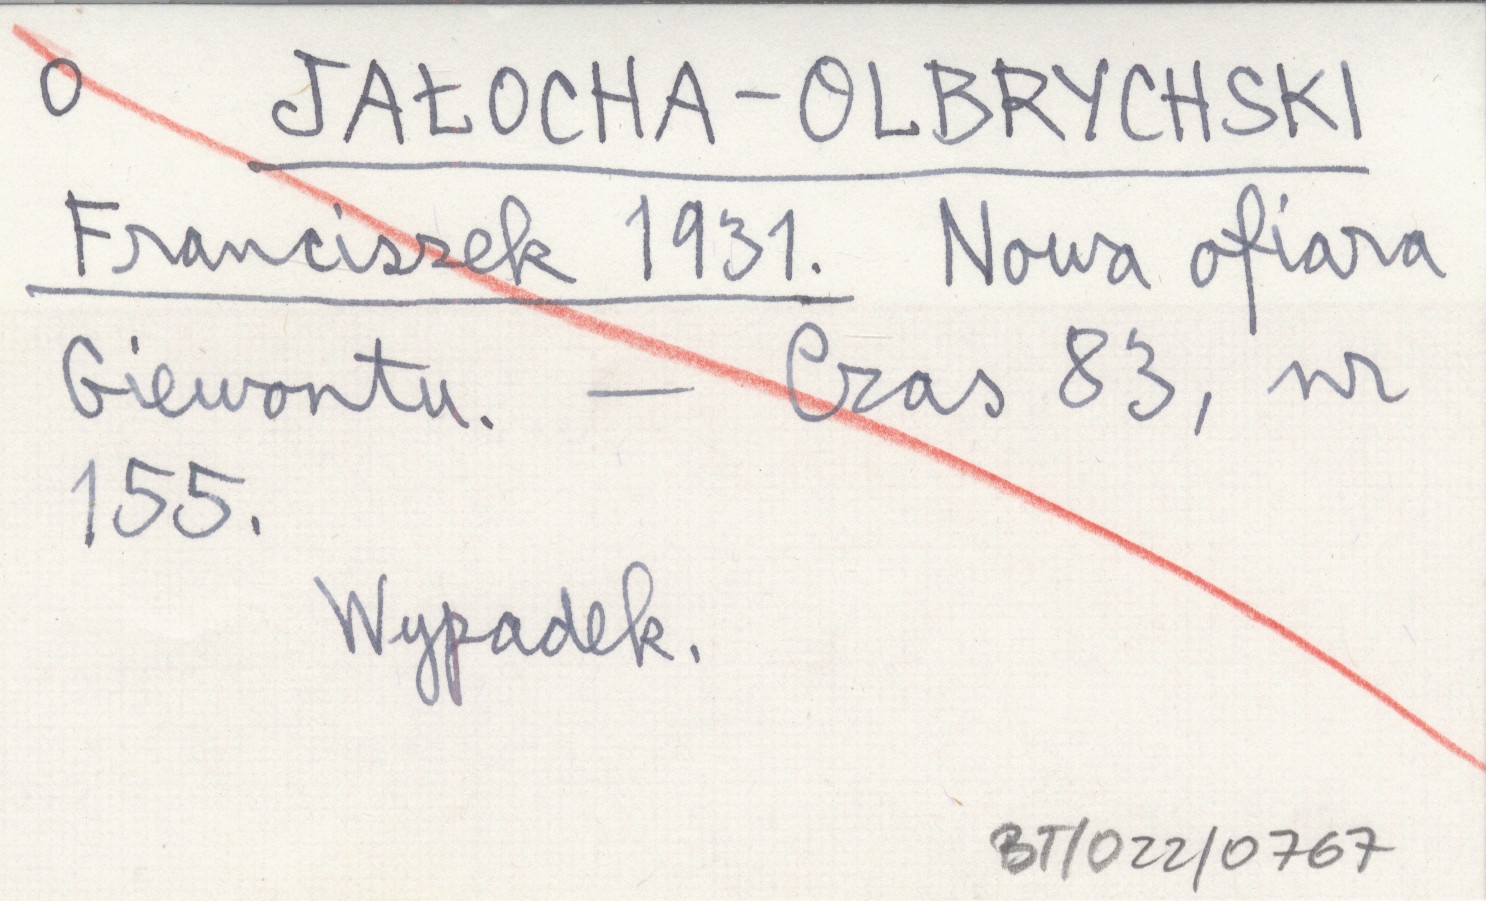 O JAŁOCHA-OLBRYCHSKI
Franciszek 1931. Nowa ofiara
Giewontu. — Czas 83, nr
155.
Wypadek.
BT/022/0767